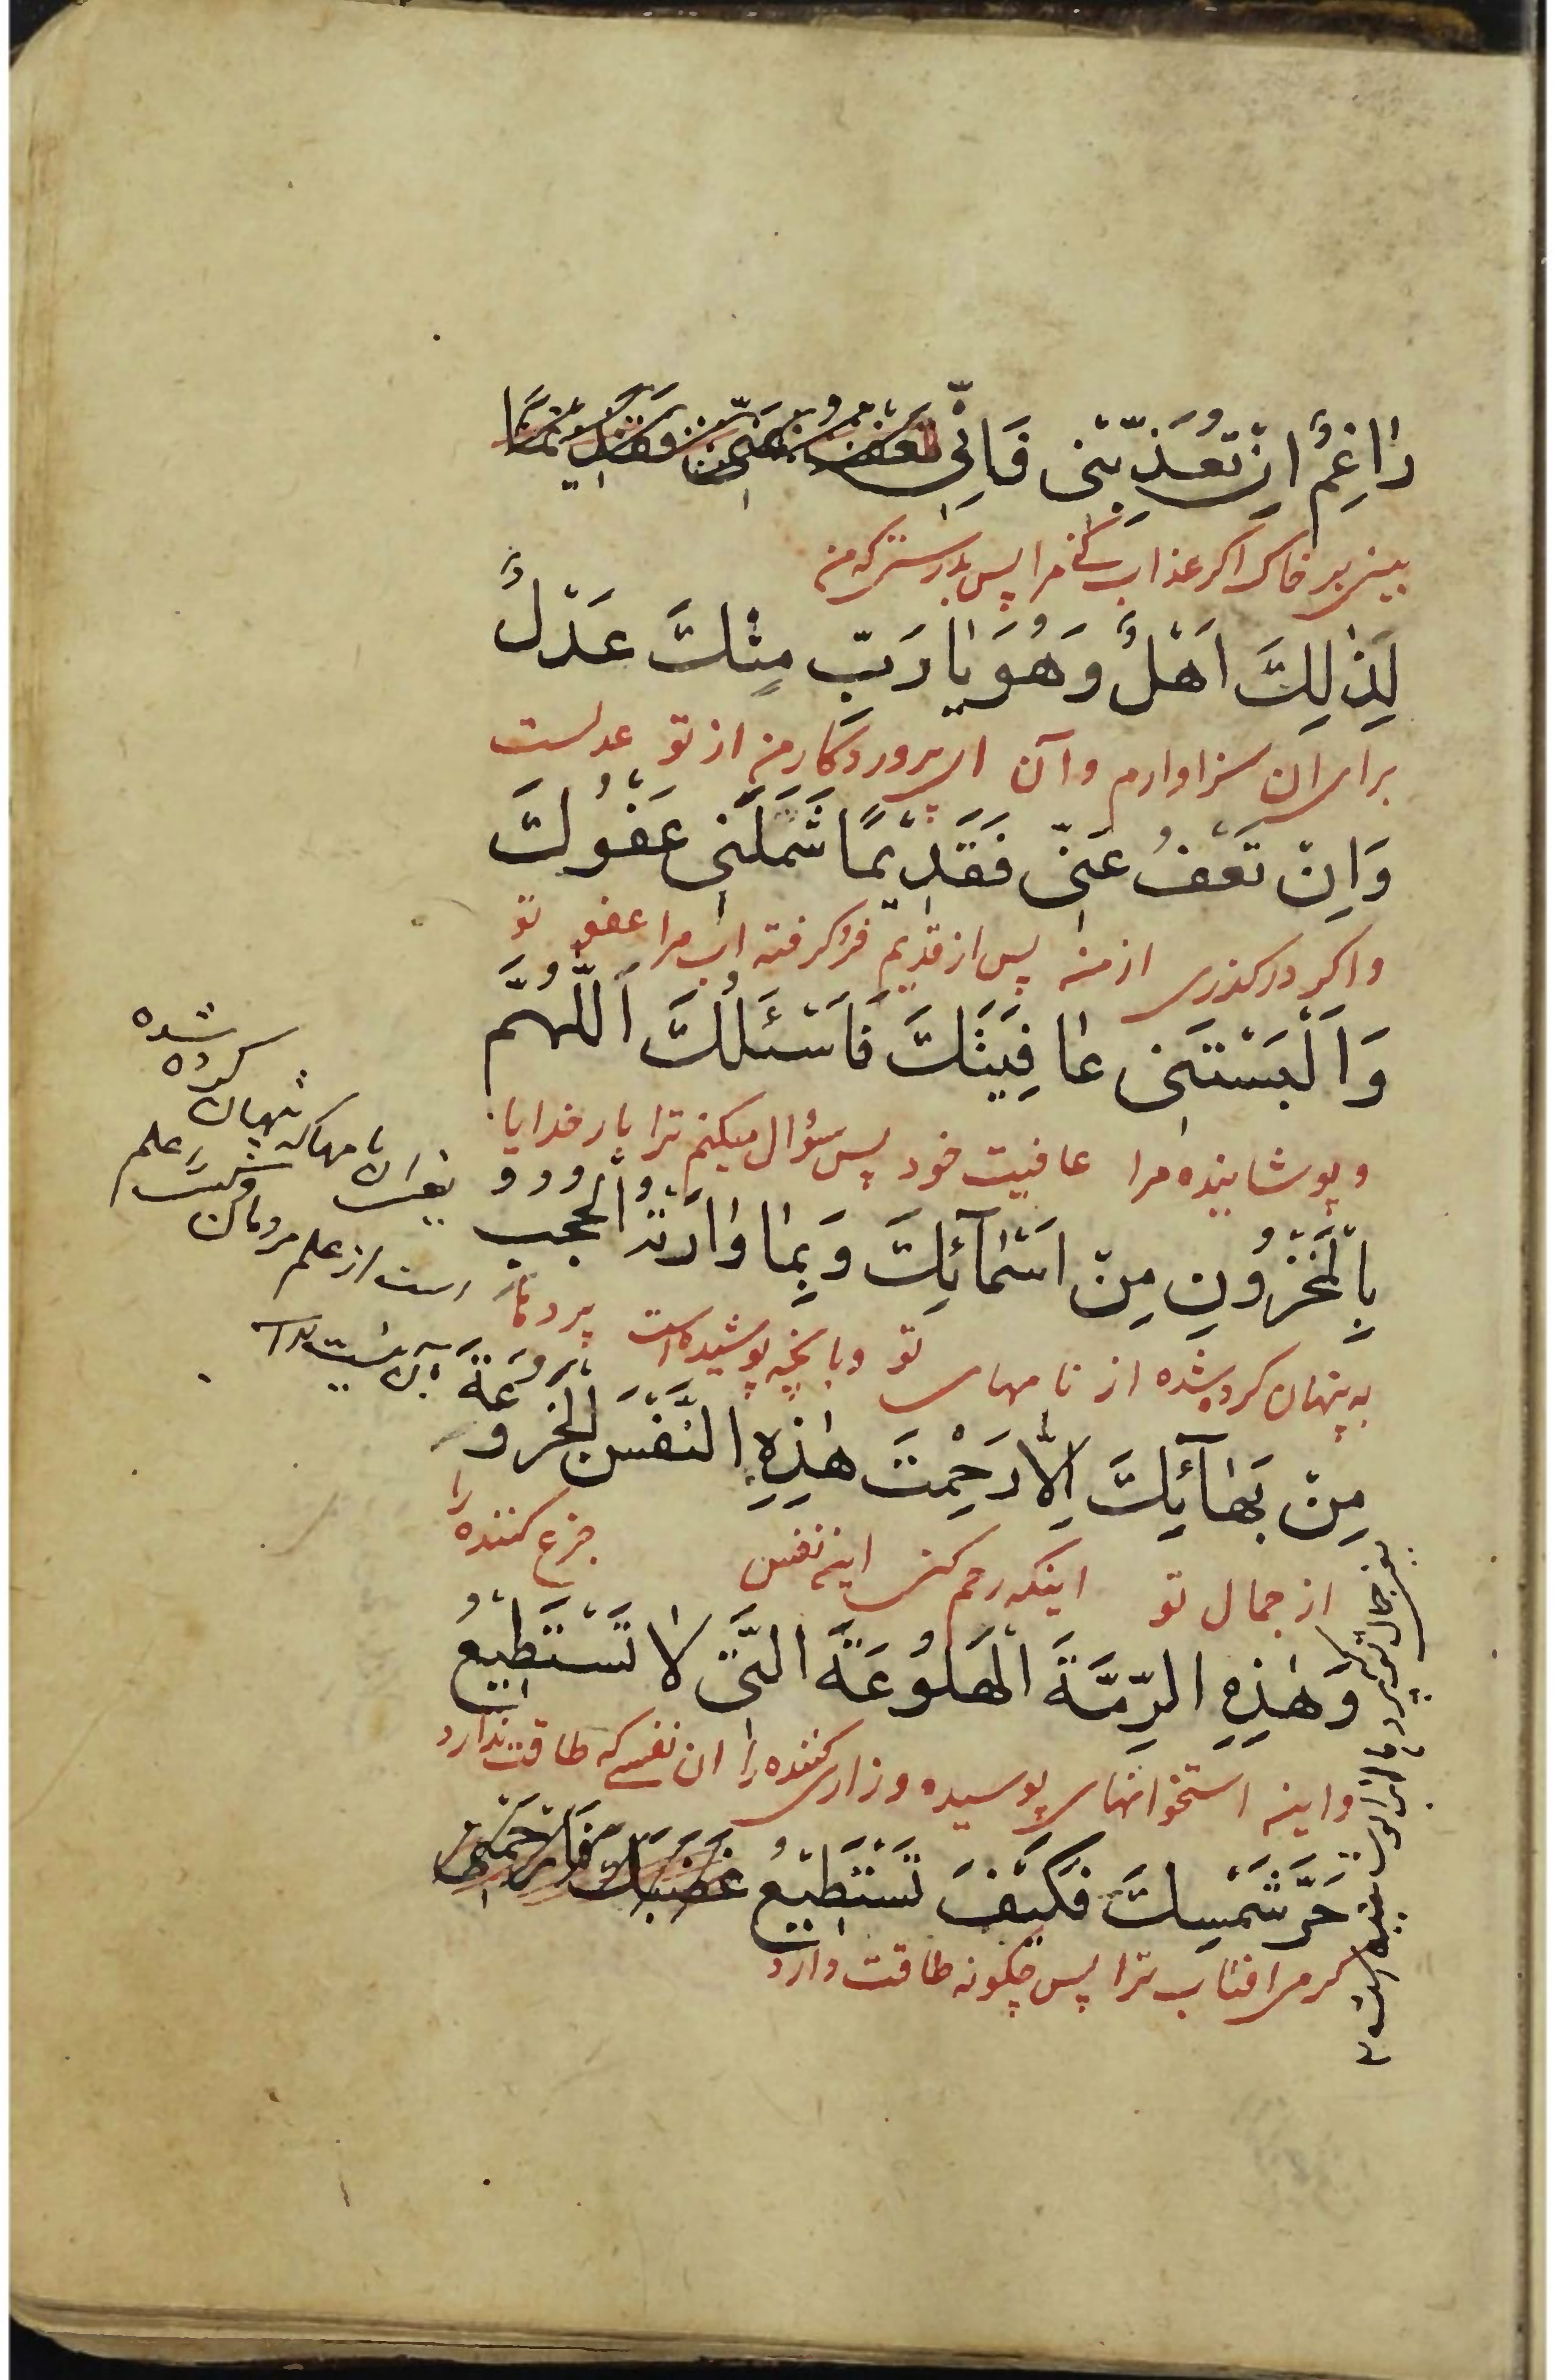 رٰاغِمٌ اِنْ تُعَذِّبْنی فَاِنِّی تَعْفُ عَنّی فَقَدیمًا
بینی بر خاک اکر عذاب کنی مرا پس بدرستی که من
لِذٰلِكَ اَهْلٌ وَهُوَ یٰا رَبِّ مِنْكَ عَدْلٌ
برای ان سزاوارم و آن ای پروردکار من از تو عدلست
وَاِنْ تَعْفُ عَنّی فَقَدیمًا شَمَلَنی عَفْوُكَ
و اکر درکذری از من پس از قدیم فرو کرفته است مرا عفو تو
وَاَلْبَسْتَنی عٰافِیَتَكَ فَاَسْئَلُكَ اَللّٰهُمَّ
و پوشانیده مرا عافیت خود پس سؤال میکنم ترا بار خدایا
بِالْمَخْزُونِ مِنْ اَسْمٰآئِكَ وَبِمٰا وٰارَتْهُ الْحُجُبُ
به پنهان کرده شده از نامهای تو و بانچه پوشیده است پردها
مِنْ بَهٰآئِكَ اِلّٰا رَحِمْتَ هٰذِهِ النَّفْسَ الْجَزُوعَةَ
از جمال تو اینکه رحم کنی این نفس جزع کننده را
وَهٰذِهِ الرِّمَّةَ الْهَلُوعَةَ الَّتی لٰا تَسْتَطیعُ
و این استخوانهای پوسیده و زاری کننده را ان نفسی که طاقت ندارد
حَرَّ شَمْسِكَ فَكَیْفَ تَسْتَطیعُ غَضَبَكَ فَارْحَمْنی
کرمی افتاب ترا پس چکونه طاقت دارد
یعنی بان نامها که پنهان کرده شده
است از علم مردمان